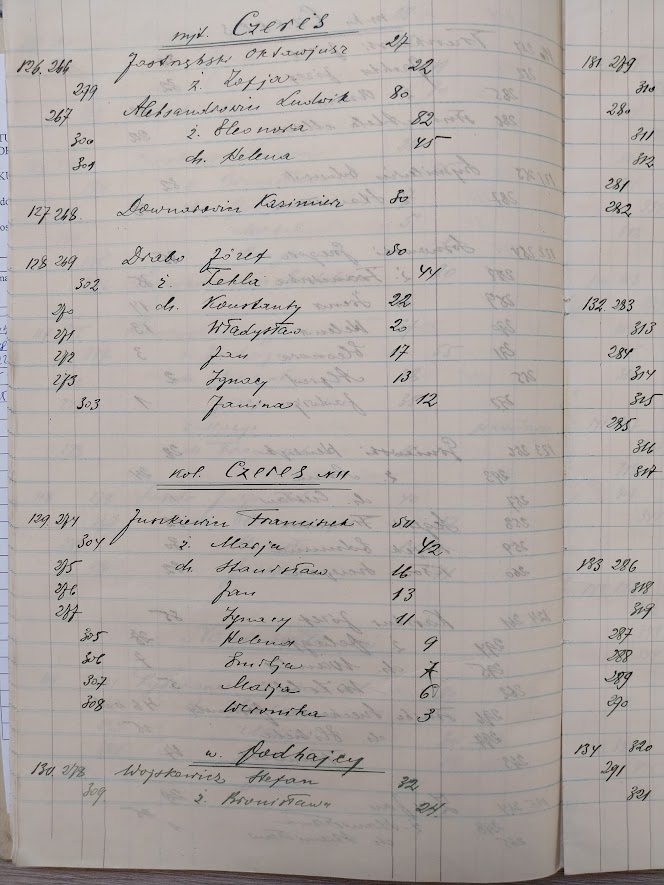 mjt. Czereś
126. 266 Jastrzębski Oktawjusz 27
279 ż. Zofja 22
267 Aleksandrowicz Ludwik 80
300 ż. Eleonora 82
301 ch. Helena 45
127 268. Downarowicz Kazimierz 30
128 269 Drabo Józef 50
302 ż. Tekla 44
270 ch. Konstanty 22
271 Władysław 20
272 Jan 17
273 Ignacy 13
303 Janina 12
kol. Czereś N 11
129 274 Juszkiewicz Franciszek 54
304 ż. Marja 42
275 ch. Stanisław 16
276 Jan 13
277 Ignacy 11
305 Helena 9
306 Emilja 7
307 Marja 6
308 Weronika 3
w. Podhajcy
130. 278 Wojtkewicz Stefan 32
309 ż. Bronisława 24
181 279
310
280
311
312
281
282
132. 283
313
284
314
315
285
316
317
133 286
318
319
287
288
289
290
134 320
291
321